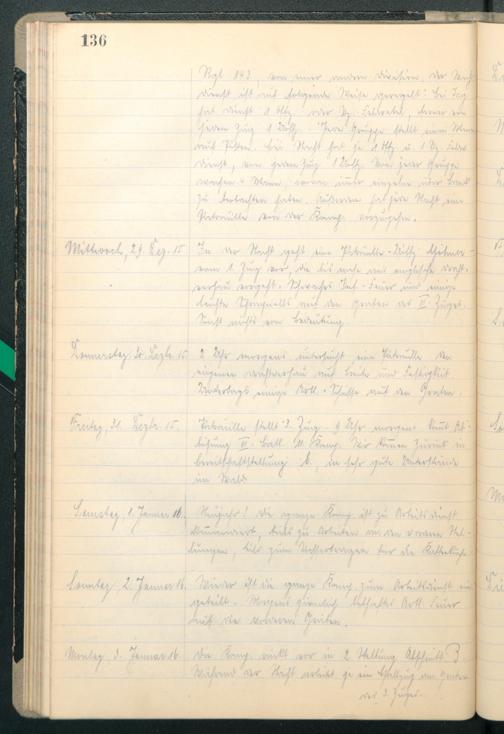 136
Rgt. 143, von einer andern Division. Der Nach
dienst ist auf folgende Weise geregelt: Bei Tag
hat Dienst 1 Uffz. oder Vz. Feldwebel, dann ein
jeder Zug 1 Uffz. Jede Gruppe stellt einen Mann
auf Posten. Bei Nacht hat je 1 Uffz u. 1 Vz. Feldw
Dienst, von jedem Zug 1 Uffz. Von jeder Gruppe
wachen Mann, wovon immer einer über Bank
zu beobachten haben. Außerdem hat jede Nacht eine
Patrouille von der Komp. vorzugehen.
Mittwoch, 29. Dez. 15
In der Nacht geht eine Patrouille Uffz.
vom 1. Zug vor, die bis nahe ans englische Draht-
verhau vorgeht. Schwaches Inf.-Feuer und einige
leichte Schrapnells auf den Graben des II Zuges.
Sonst nichts von Bedeutung.
Donnerstag, 30. Dezbr. 15
2 Uhr morgens untersucht eine Patrouille den
eigenen Drahtverhau auf Breite und Festigkeit
Untertags einige Art. Schüsse auf den Graben.
Freitag, 31. Dezbr. 15.
Patrouille stellt 3. Zug. 9 Uhr morgens kommt Ab-
lösung II. Batl. 11. Komp. Wir kommen zurück in
Bereitschaftsstellung b, in sehr gute Unterstände
im Wald.
Samstag, 1. Januar 16.
Neujahr! Die ganze Komp. ist zu Arbeitsdienst
kommandiert, teils zu Arbeiten in den vorderen Stel-
lungen, teils zum Materialtragen für die
Sonntag 2. Januar 16.
Wieder ist die ganze Komp. zum Arbeitsdienst ein
geteilt. Morgens ziemlich lebhaftes Artl. Feuer
auf den vorderen Graben.
Montag, 3. Januar 16
Die Komp. rückt vor in 2. Stellung Abschnitt B
Während der Nacht arbeitet je ein Halbzug am Graben
des 3. Zuges.